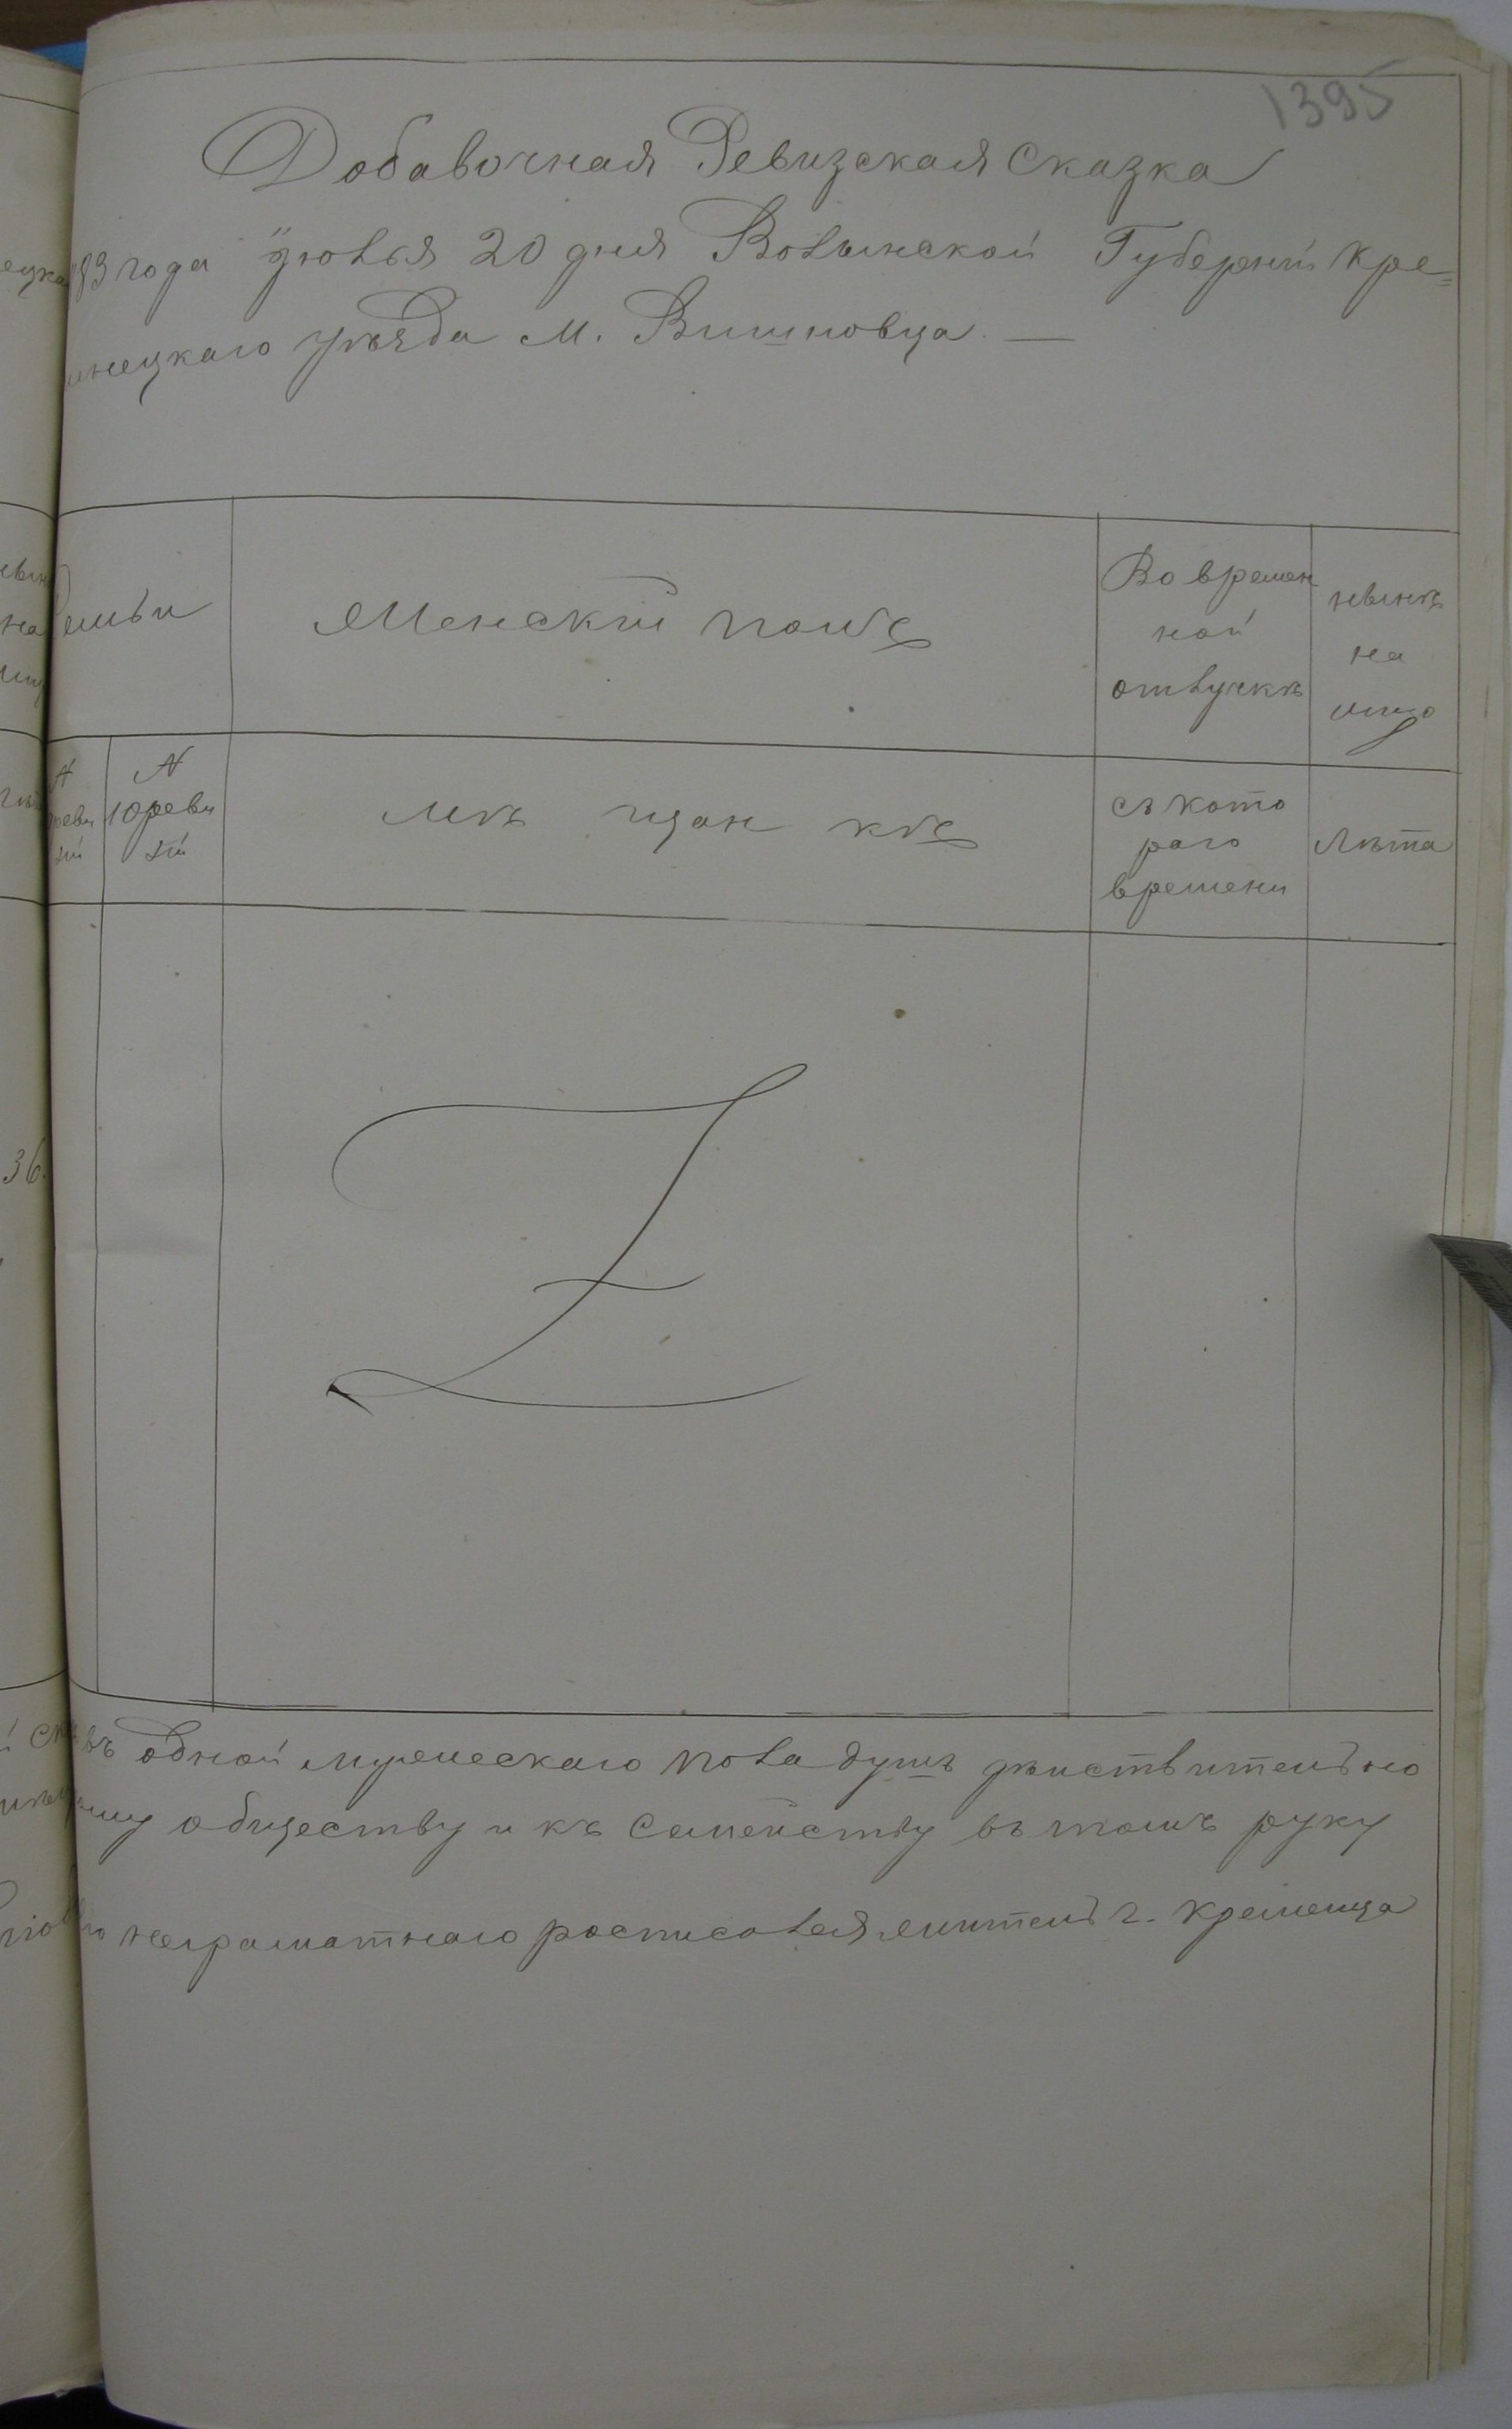 1395
Добавочная Ревизская Сказка
года Июля 20 дня Волынской Губерніи Кре=
менецкаго уѣзда М. Вишновца. —
Семьи
Женскій полъ
Во времен
ной
отлучкѣ
нынѣ
на
лицо
N
реви
зіи
N
10 реви
зіи
мѣ щан кѣ
съ кото
раго
времени
Лѣта
36.
въ одной мужескаго пола душѣ дѣйствительно
обществу и къ Семейству въ томъ руку
неграматнаго росписовался житель г. Кременца